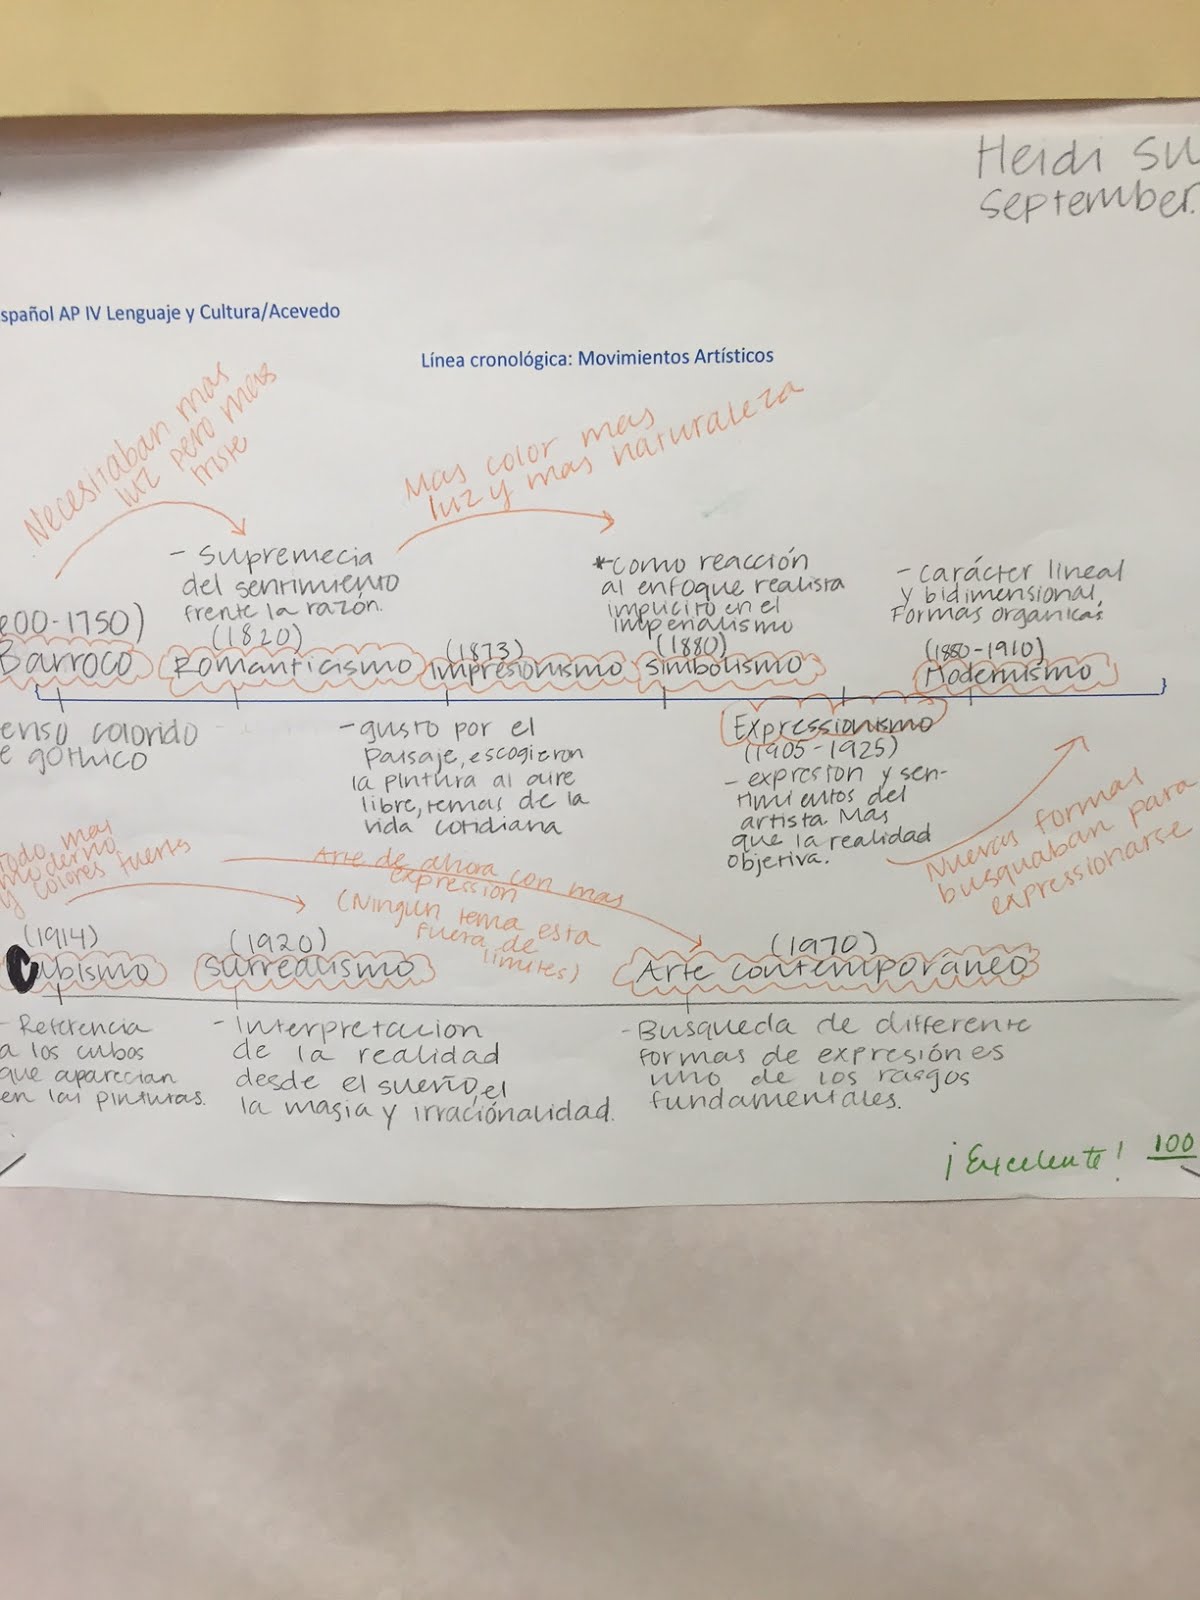 Heidi Su
September.
spañol AP IV Lenguaje y Cultura/Acevedo
Línea cronológica: Movimientos Artísticos
Necesitaban mas
luz pero mas
triste
Mas color mas
luz y mas naturaleza
- Supremecia
del sentimiento
frente la razón.
(1820)
Romanticismo
*como reacción
al enfoque realista
implicito en el
imperialismo
(1880)
Simbolismo
- carácter lineal
y bidimensional,
Formas organicas
(1880-1910)
Modernismo
00-1750)
Barroco
(1873)
Impresionismo
enso colorido
e gothico
- gusto por el
Paisaje, escogieron
la pintura al aire
libre, temas de la
vida cotidiana
Expressionismo
(1905-1925)
- expresion y sen-
timientos del
artista Mas
que la realidad
objetiva.
Nuevas formas
busquaban para
expressionarse
Todo mas
moderno
y colores fuertes
Arte de ahora con mas
expression
(Ningun tema esta
fuera de
limites)
(1914)
Cubismo
(1920)
Surrealismo
(1970)
Arte contemporáneo
- Referencia
a los cubos
que aparecian
en las pinturas.
- Interpretacion
de la realidad
desde el sueño, el
la magia y irracionalidad.
- Busqueda de differente
formas de expresión es
uno de los rasgos
fundamentales.
¡Excelente! 100